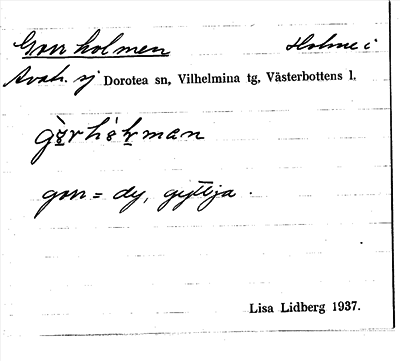 Gorrholmen Holme i
Avah. sj Dorotea sn, Vilhelmina tg, Västerbottens l.
gorr = dy, gyttja.
Lisa Lidberg 1937.